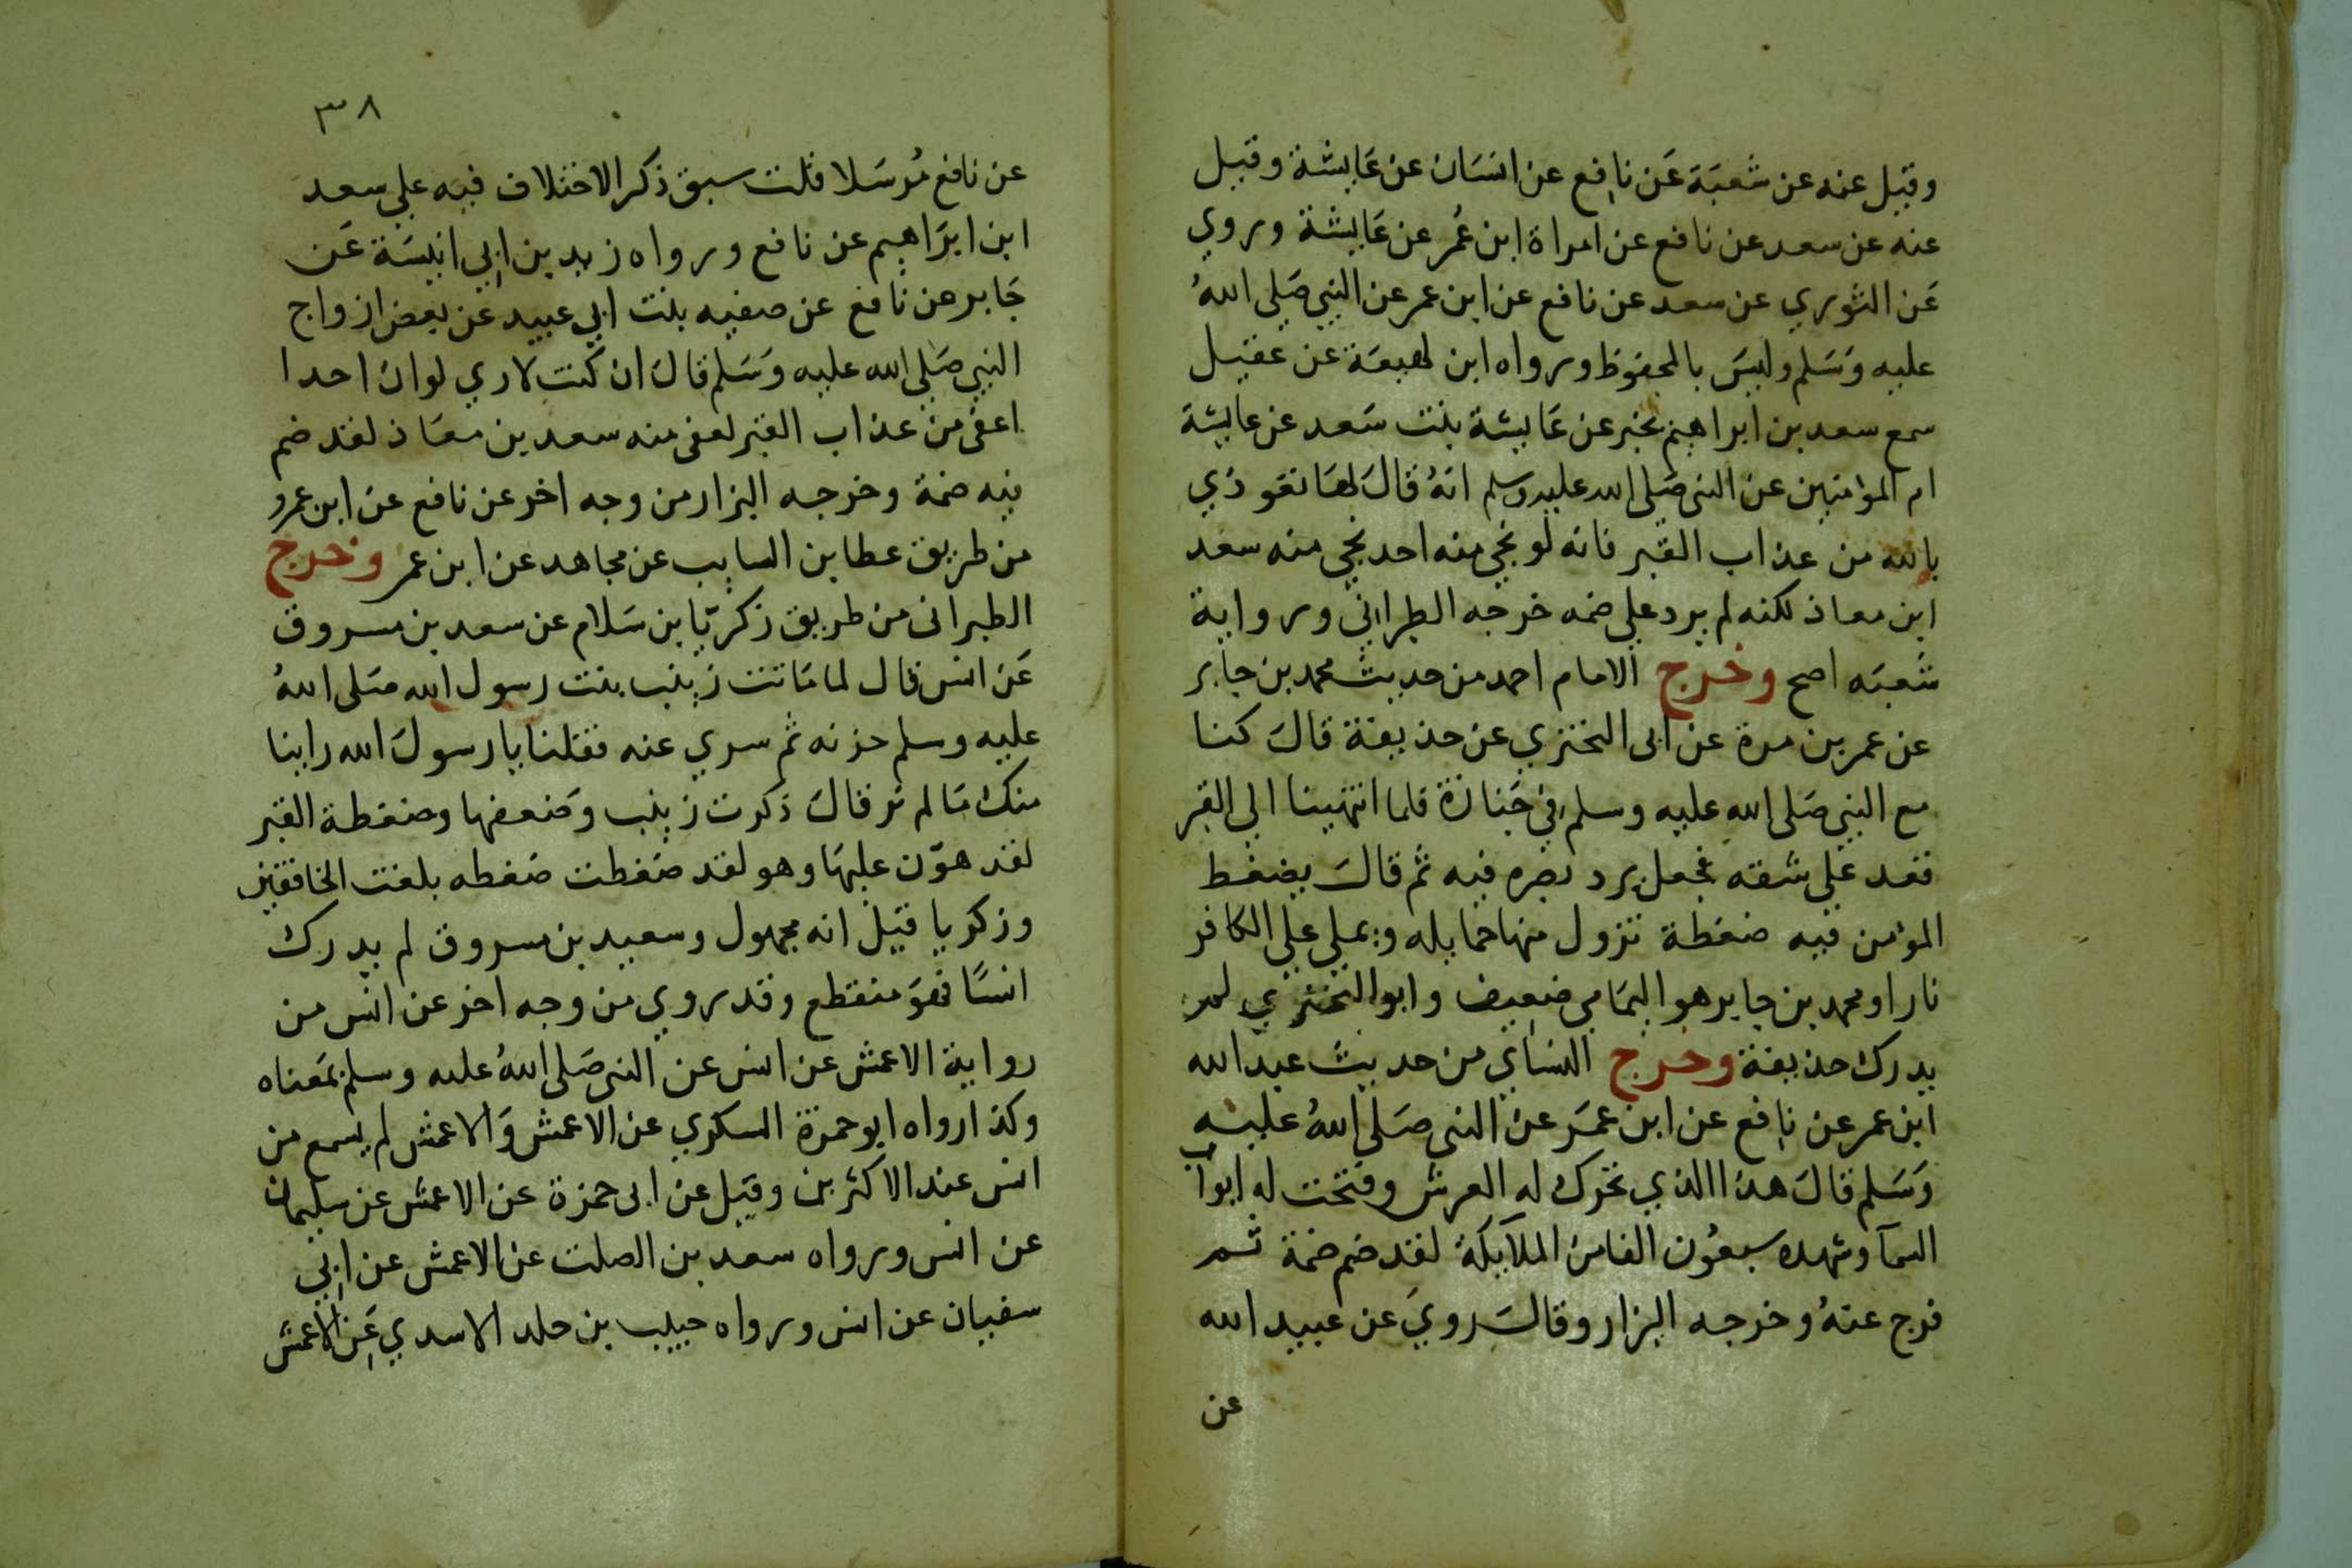 وقيل عنه عن شعبَة عَن نافع عن انسَان عن عَايشة وقيل
عنه عن سعد عن نافع عن امراة ابن عُمر عن عَايشة وروي
عَن الثوري عن سعد عن نافع عن ابن عمر عن النبي صَلى اللهُ
عليه وَسَلم وليسَ بالمحفوظ ورواه ابن لهيعَة عن عقيل
سمع سعد بن ابراهيم يخبر عن عَايشة بنت سَعد عن عايشة
ام المؤمنين عن النبى صَلى الله عليه وسلم انهُ قالَ لهَا تعوذي
بالله من عذاب القبر فانه لو نجي منه احد نجي منه سعد
ابن معاذ لكنه لم يرد علي ضمه خرجه الطبراني ورواية
شعبَه اصح وخرج الامام احمد من حديث محمد بن جابر
عن عمر بن مرة عن ابى البختري عن حذيفة قالَ كنا
مع النبي صَلى الله عليه وسلم في جَنازة فلما انتهينا الي القبر
فقعد علي شقته فجعل يرد بصره فيه ثم قالَ يضغط
المؤمن فيه ضغطة تزول منها حمايله ويملي علي الكافر
نارا ومحمد بن جابر هو اليمَامي ضعيف وابو البختري لم
يدرك حذيفة وخرج النساي من حديث عبد الله
ابن عمر عن نافع عن ابن عمَر عن النبي صَلى اللهُ عليه
وَسَلم قالَ هذا الذي تحرك له العرش وفتحت له ابواب
السمآ وشهده سبعُون الفا من الملآيكة لقد ضم ضمة ثم
فرج عنهُ وخرجه البزار وقالَ رويَ عن عبيد الله
عن
٣٨
عن نافع مُرسَلا قلت سبق ذكر الاختلاف فيه علي سعد
ابن ابرَاهيم عن نافع ورواه زيد بن ابي انيسَة عَن
جَابر عن نافع عن صفيه بنت ابي عبيد عن بعض ازواج
النبي صَلي الله عليه وَسَلم قالَ ان كنت لاري لو ان احدا
اعفى من عذاب القبر لعفى منه سعد بن معَاذ لقد ضم
فيه ضمة وخرجه البزار من وجه اخر عن نافع عن ابن عمر و
من طريق عطا بن السايب عن مجاهد عن ابن عمر وخرج
الطبرانى من طريق زكريّا بن سَلام عن سعد بن مسروق
عَن انس قال لما مَاتت زينب بنت رسول الله صَلى اللهُ
عليه وسلم حزنه ثم سري عنه فقلنا يا رسولَ الله راينا
منك مَا لم نر قالَ ذكرت زينب وَضعفها وضغطة القبر
لقد هوّن عليهَا وهو لقد ضغطت ضغطه بلغت الخافقين
وزكريا قيل انه مجهول وسعيد بن مسروق لم يدرك
انسًا فهوَ منقطع وقد روي من وجه اخر عن انس من
رواية الاعمش عن انس عن النبى صَلى اللهُ عليه وسلم بمَعناه
وكذا رواه ابو حمزة السكري عن الاعمش وَالاعمش لم يسمع من
انس عند الاكثرين وقيل عن ابى حمزة عن الاعمش عن سليمان
عن انس ورواه سعد بن الصلت عن الاعمش عن ابي
سفيان عن انس ورواه حبيب بن خلد الاسدي عَن الاعمش